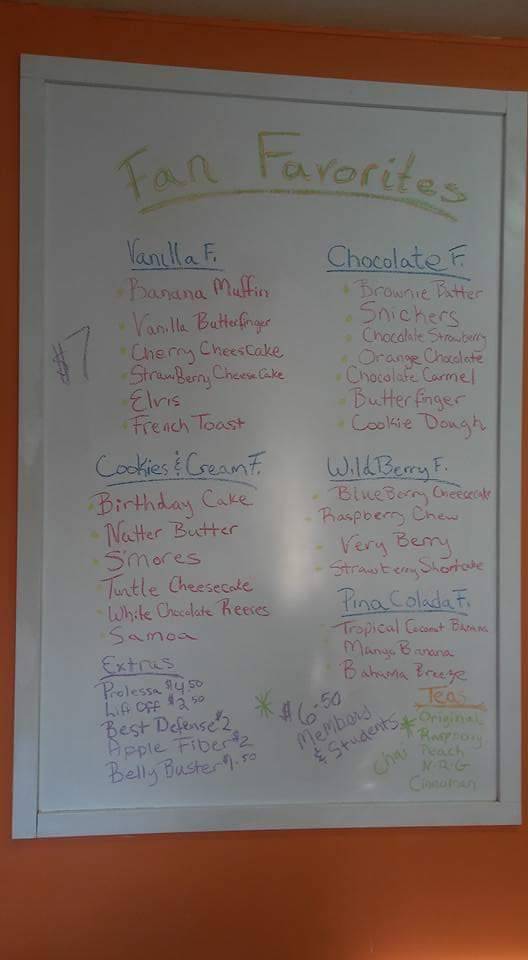 Fan Favorites
$7
Vanilla F.
Banana Muffin
Vanilla Butterfinger
Cherry CheesCake
StrawBerry Cheese Cake
Elvis
French Toast
Chocolate F.
Brownie Batter
Snickers
Chocolate Strawberry
Orange Chocolate
Chocolate Carmel
Butterfinger
Cookie Dough
Cookies & Cream F.
Birthday Cake
Nutter Butter
S'mores
Turtle Cheesecake
White Chocolate Reeces
Samoa
WildBerry F.
BlueBerry Cheesecake
Raspberry Chew
Very Berry
Strawberry Shortcake
Pina Colada F.
Tropical Coconut Banana
Mango Banana
Bahama Breeze
Extras
Prolessa $4.50
Lift Off $2.50
Best Defense $2
Apple Fiber $2
Belly Buster $1.50
* $6.50
Members
& Students
Teas
* Original
Raspbary
Chai Peach
N-R-G
Cinnaman